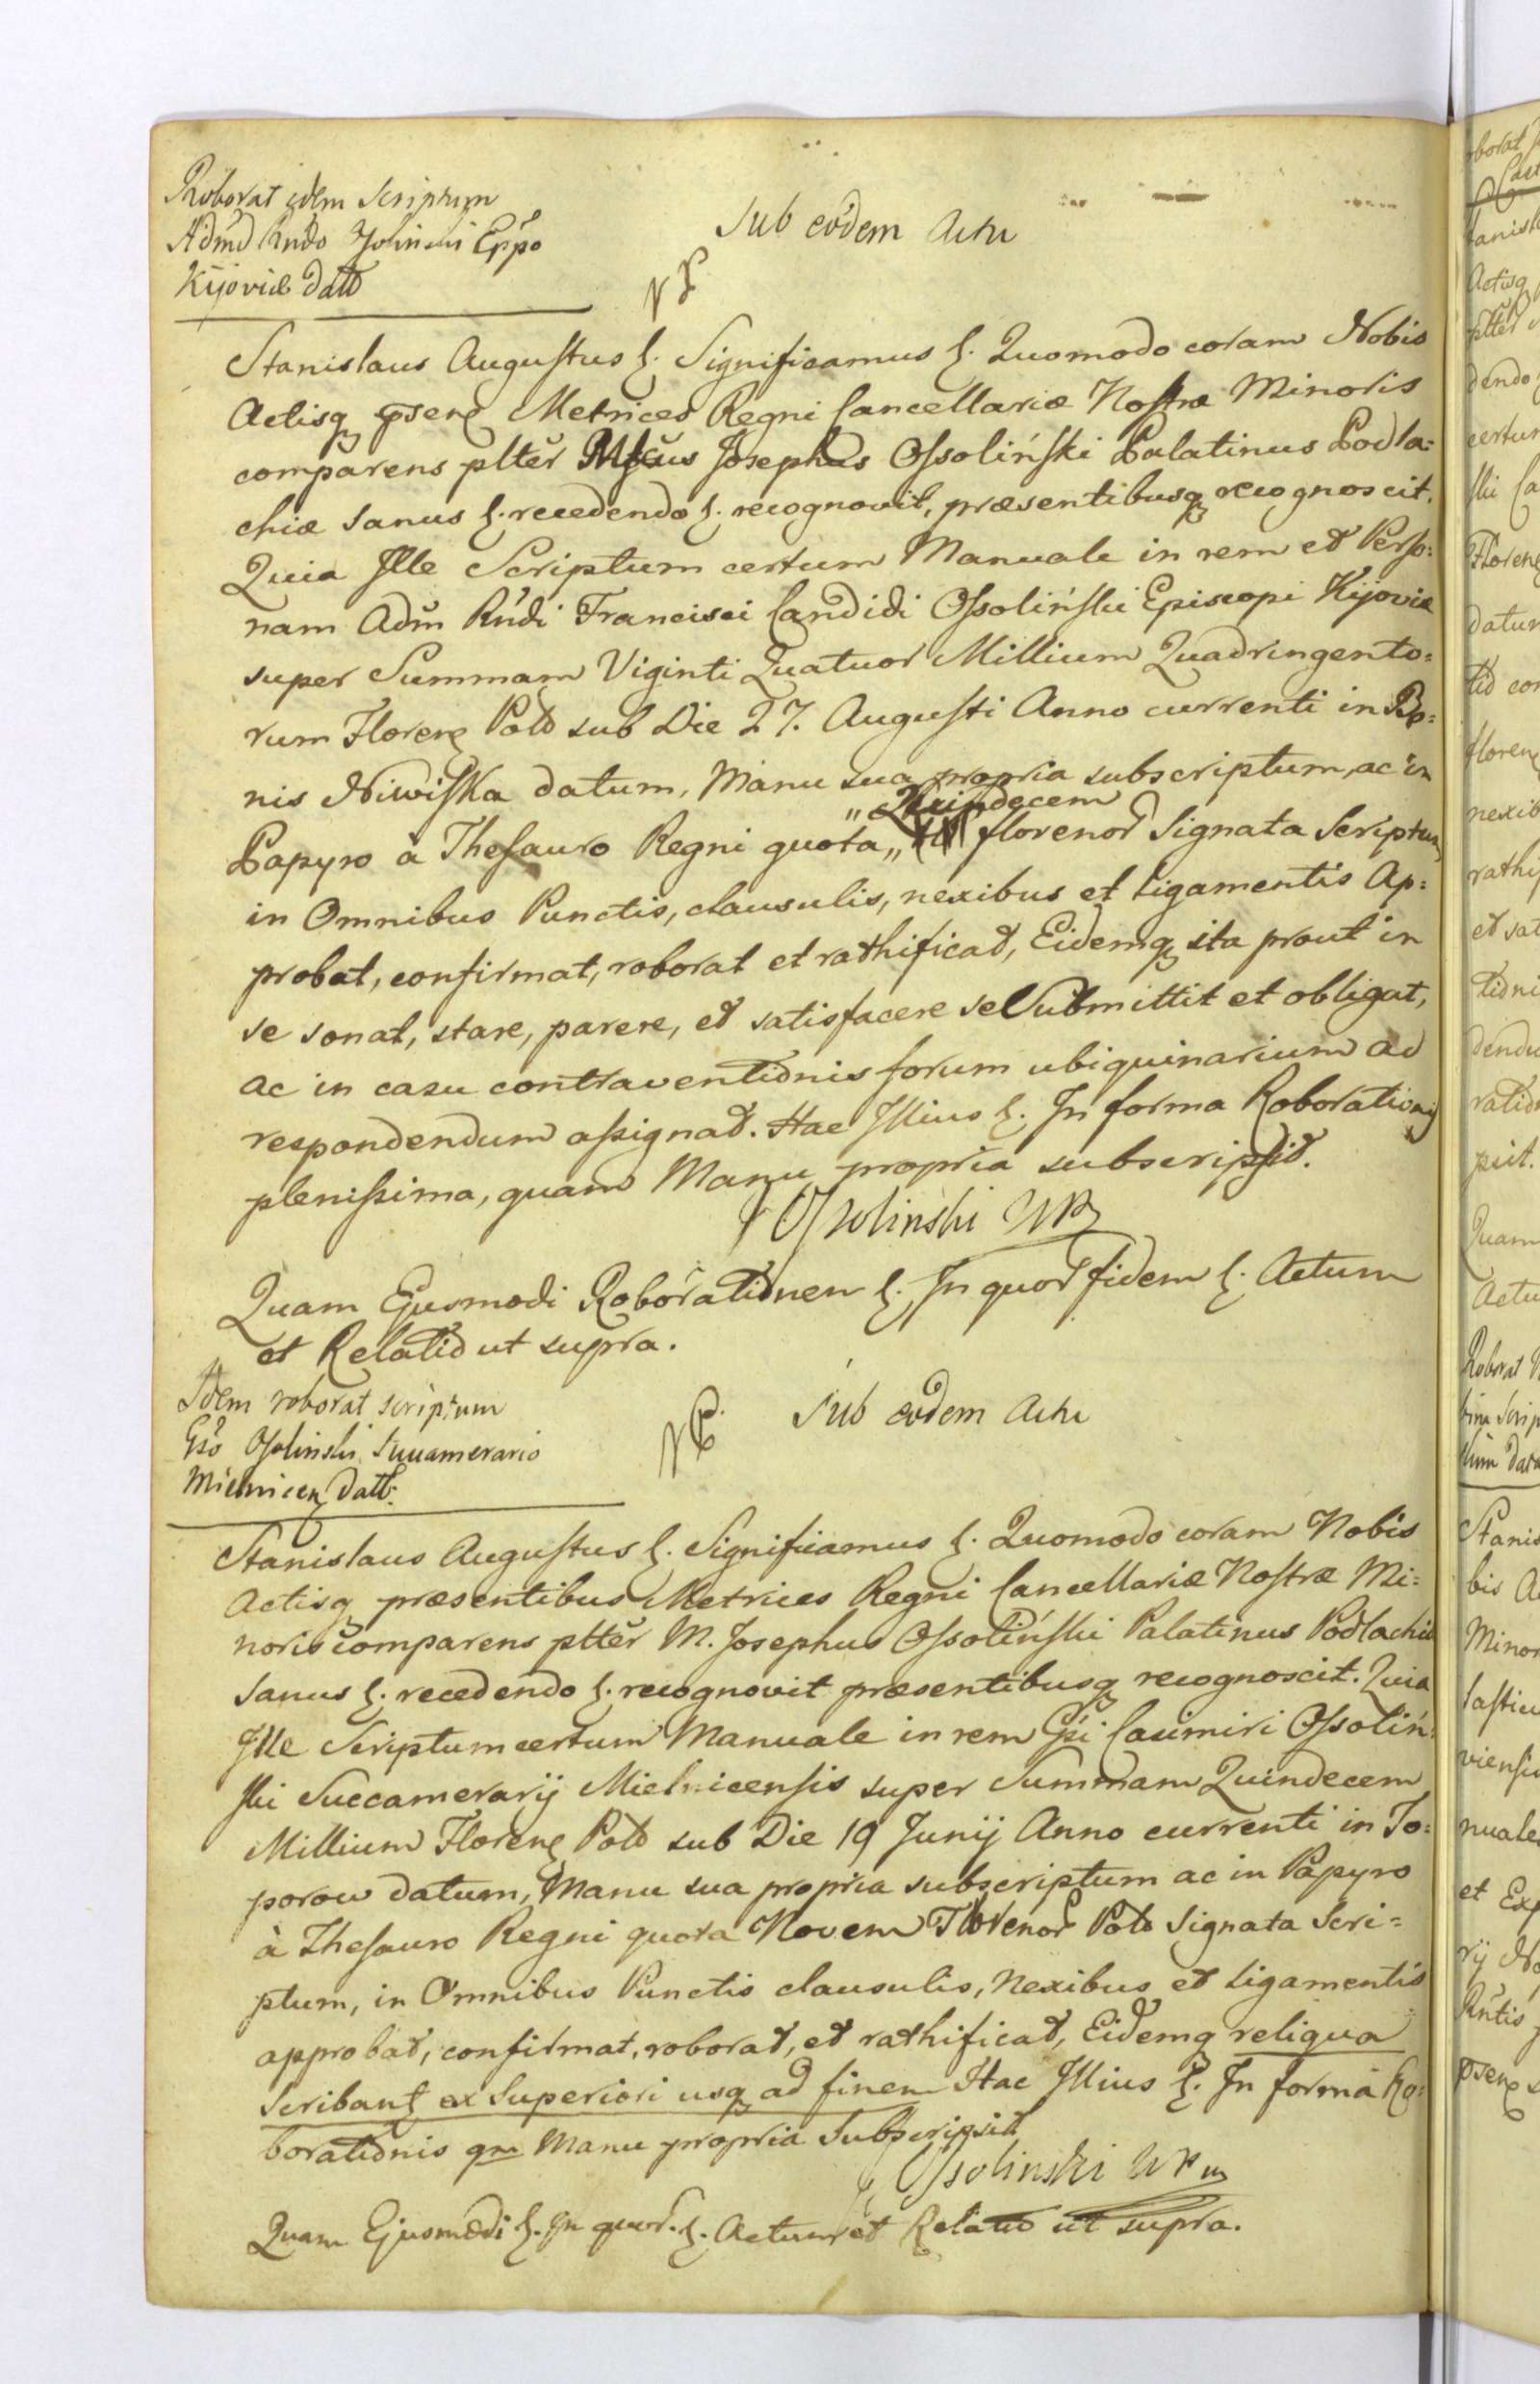 Roborat idem Scriptum
Admd Rndo Ossoliński Eppo
Kijoviæ datt
Sub eodem Actu
Stanislaus Augustus &. Significamus &. Quomodo coram Nobis
Actisq psenq Metrices Regni Cancellariæ Nostræ Minoris
comparens pltěr Mfcus Josephus Ossoliński Palatinus Podla=
chiæ sanus &. recedendo &. recognovit, præsentibusq recognoscit.
Quia Ille Scriptum certum Manuale in rem et Perso=
nam Adm Rndi Francisci Candidi Ossoliński Episcopi Kijoviæ
super Summam Viginti Quatuor Millium Quadringento=
rum Florenq Pold sub Die 27. Augusti Anno currenti in Bo=
nis Niwiska datum, Manu sua propria subscriptum, ac in
„Quindecem
Papyro à Thesauro Regni quota „ florenor Signata Scriptum
in Omnibus Punctis, clausulis, nexibus et ligamentis Ap=
probat, confirmat, roborat et rathificat, Eidemq ita prout in
se sonat, stare, parere, et satisfacere se Submittit et obligat,
ac in casu contraventionis forum ubiquinarium ad
respondendum assignat. Hac Illius &. In forma Roborationis
plenissima, quam Manu propria subscripsit.
J Ossoliński WP
Quam Ejusmodi Roborationem &. In quor fidem &. Actum
et Relatio ut supra.
Idem roborat scriptum
Gso Ossoliński Succamerario
Mielnicen datt.
Sub eodem Actu
Stanislaus Augustus &. Significamus &. Quomodo coram Nobis
Actisq præsentibus Metrices Regni Cancellariæ Nostræ Mi=
noris comparens pltěr M. Josephus Ossoliński Palatinus Podlachiæ
sanus &. recedendo &. recognovit præsentibusq recognoscit. Quia
Ille Scriptum certum Manuale in rem Gsi Casimiri Ossoliń=
ski Succamerarij Mielnicensis super Summam Quindecem
Millium Florenq Pold sub Die 19 Junij Anno currenti in To=
porow datum, Manu sua propria subscriptum ac in Papyro
à Thesauro Regni quota Novem Florenor Pold Signata Scri=
ptum, in Omnibus Punctis clausulis, Nexibus et ligamentis
approbat, confirmat, roborat, et rathificat, Eidemq reliqua
scribant ex Superiori usq ad finem Hac Illius &. In forma Ro=
borationis qm Manu propria Subscripsit
J Ossolinski WP
Quam Ejusmodi &. In quor. &. Actum et Relatio ut supra.